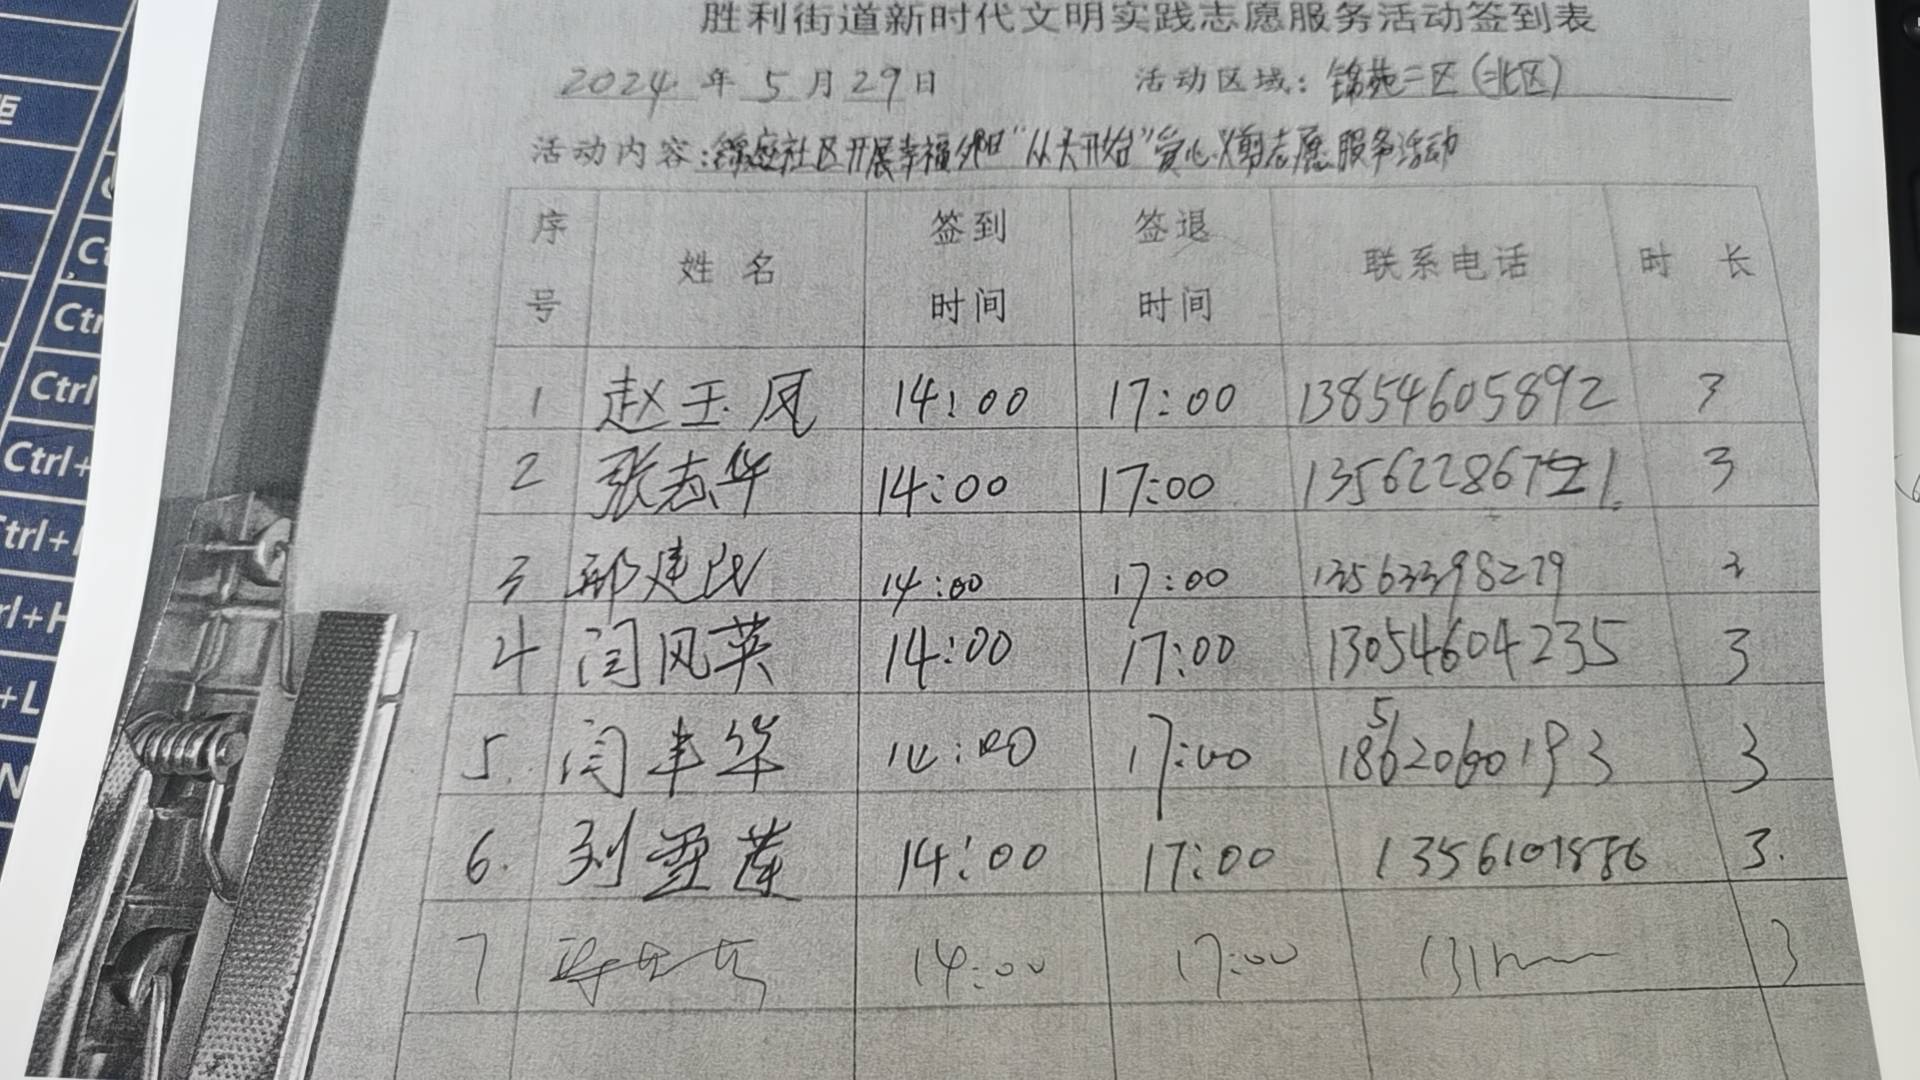 胜利街道新时代文明实践志愿服务活动签到表
2024 年 5 月 29 日 活动区域：锦苑二区（北区）
活动内容：锦苑社区开展幸福夕阳“从头开始”爱心义剪志愿服务活动
序号 姓名 签到时间 签退时间 联系电话 时长
1 赵玉凤 14:00 17:00 13854605892 3
2 张志华 14:00 17:00 135622867 3
3 邢建民 14:00 17:00 13563398279 3
4 闫风英 14:00 17:00 13054604235 3
5. 闫丰华 14:00 17:00 3
6. 刘雪莲 14:00 17:00 3.
7 14:00 17:00 131 3
Ctrl
Ctrl+
trl+
rl+H
+L
N